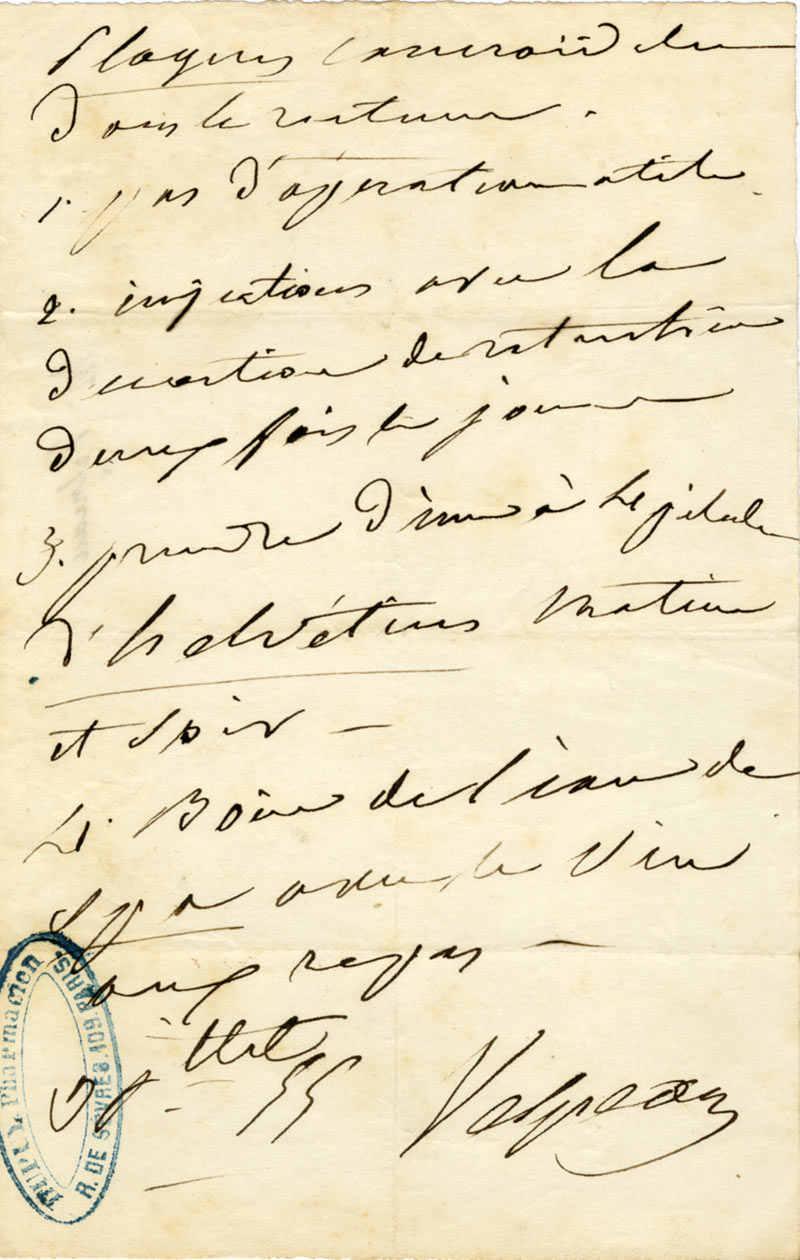 Plaques cancroïdes
Dans le rectum.
1. pas d'opération utile
2. injections avec la
Decoction de ratanhia
Deux fois le jour
3. prendre D'une à 4 pilules
D'helvétius matin
et soir —
4. Boire de l'eau de
Spa avec le vin
aux repas —
55
Velpeau
Pharmacien
R. DE SÈVRES, 109, PARIS.